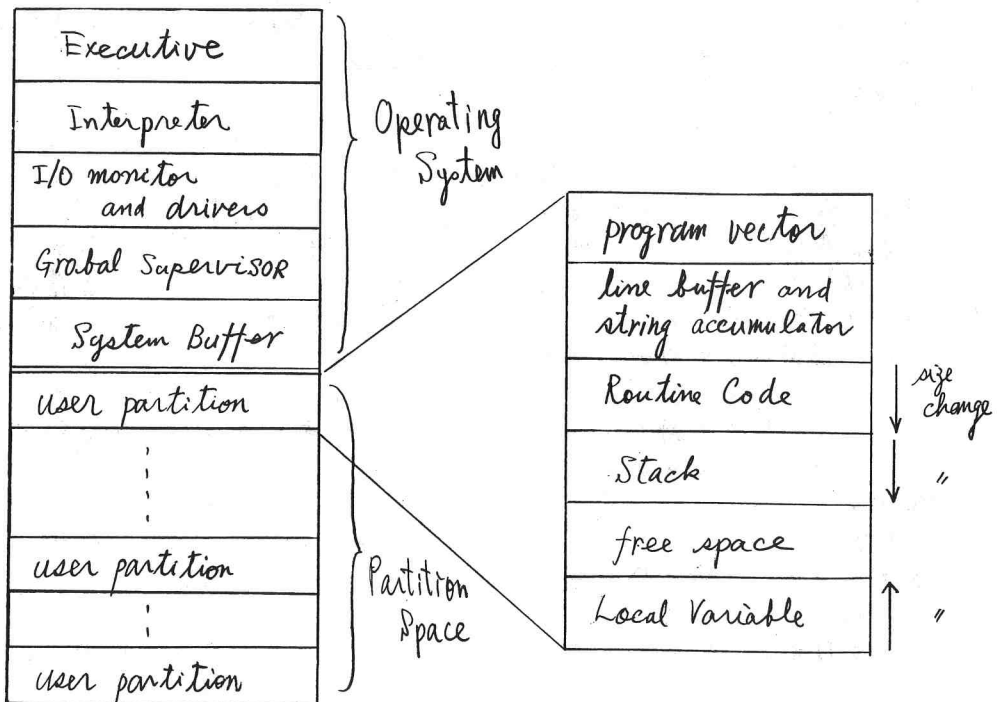 Executive
Interpreter
I/O monitor
and drivers
Grobal Supervisor
System Buffer
user partition
user partition
user partition
Operating
System
Partition
Space
program vector
line buffer and
string accumulator
Routine Code
Stack
free space
Local Variable
size
change
〃
〃